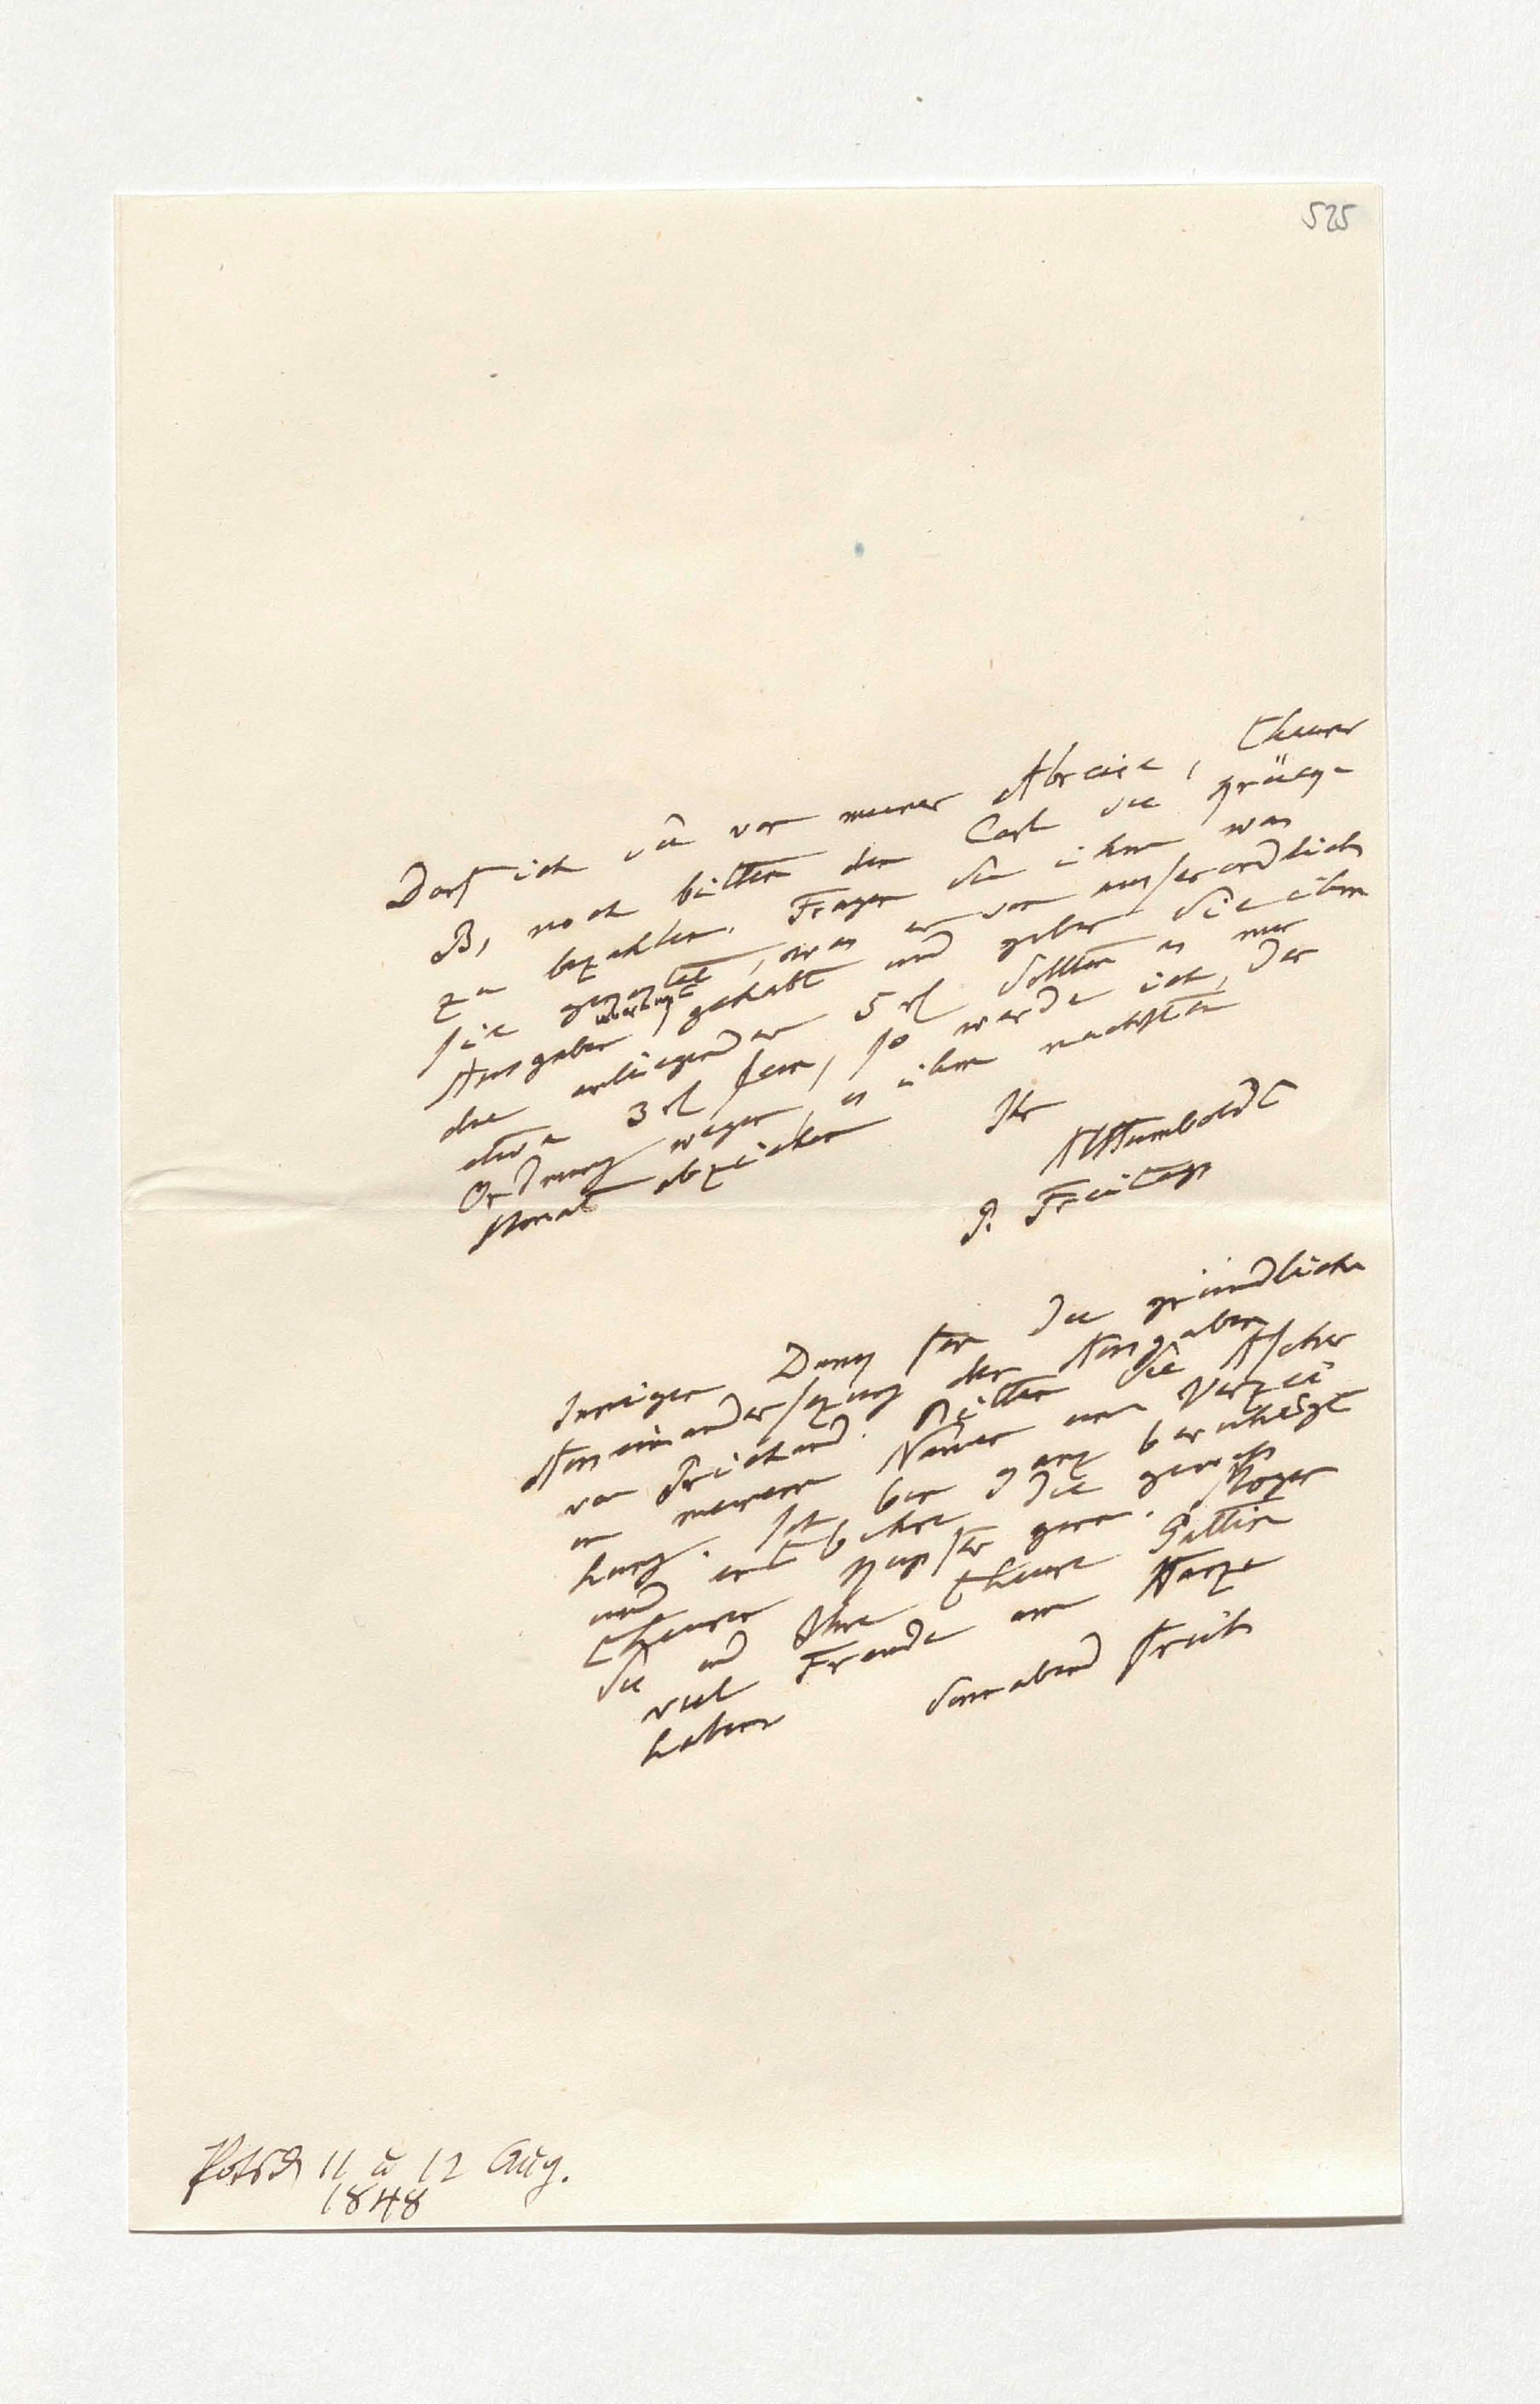 525
Darf ich Sie vor meiner Abreise, theurer
B, noch bitten den Carl die
zu bezahlen. Fragen Sie ihm was
sie gegen was er von außerordtlich
Ausgaben gehabt und geben Sie ihm
die anliegenden 5 rl Sollten es nur
etwa 3 rl sein, so werde ich, der
Ordnung wegen, es ihm nächsten
Monat abziehen
Ihr
AHumboldt
P. Freitags
Innigen Dank für die gründliche
Auseinandersezung der Ausgaben
von Bitten Sie Asher
in meinem Namen um Verzei
hung. Ich bin ganz beruhigt
und entbehre die
theuren Kupfer gern. Mögen
Sie und Ihre theure Gattin
viel Freude am Harze
haben
Sonnabend früh
Potsd 11 u 12 Aug.
1848